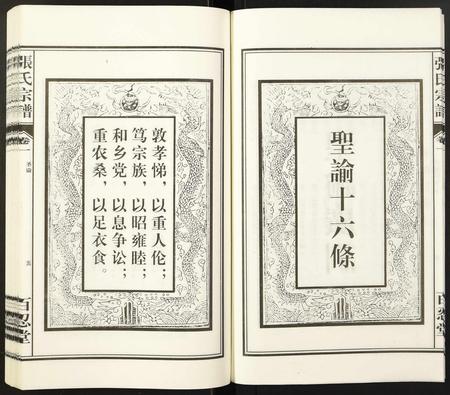 張氏宗譜
卷一
聖諭十六條
敦孝悌，以重人伦；
笃宗族，以昭雍睦；
和乡党，以息争讼；
重农桑，以足衣食。
張氏宗譜
卷一
百忍堂
百忍堂